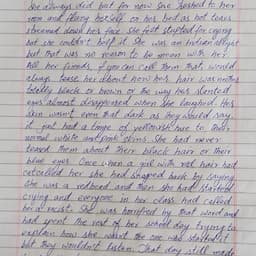 she always did but for now she rushed to her
room and flung herself on her bed as hot tears
streamed down her face. She felt stupid for crying
but she couldn't help it. She was an Indian
but that was no reason to be mean with her.
her friends, if you can call them that, would
always tease her about how her hair was not
totally black or brown or the way her slanted
eyes almost disappeared when she laughed. Her
skin wasn't even that dark as they would say
it just had a tinge of yellowish hue to their
normal white and pink skins. She had never
teased them about their black hair or their
blue eyes. Once when a girl with red hair had
catcalled her she had snapped back by saying
she was a redhead and then she had started
crying and everyone in her class had called
her a racist. She was horrified by that word and
had spent the rest of her school day trying to
explain how she wasn't the one who started it
but they wouldn't listen. That day still made